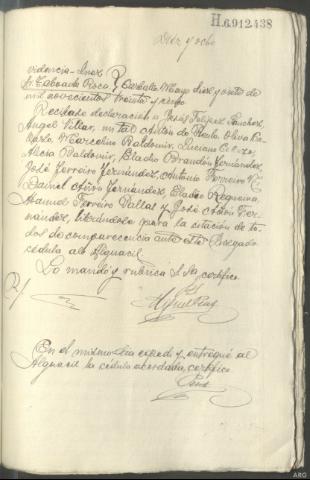 H.6.912.438
Diez y ocho
videncia-Juez
Sr. Taboada Roca. Carballo Mayo diez y siete de
mil novecientos treinta y
Recíbase declaración a Jesús Sánchez,
Angel Villar, un tal Antón de Paulo,
Marcelino Baldomir,
Alicia Baldomir, Eladio Fernández,
José Ferreiro Fernández, Antonio Ferreiro
Daniel Añón Fernández, Eladio Regueira,
Manuel Ferreiro Vallas y José Añón Fer-
nandez, librándose para la citación de to-
dos de comparecencia ante este Juzgado
cédula al Alguacil.
Lo mandó y rubrica S. Sª certifico
En el mismo dia expedí y entregué al
Alguacil la cédula acordada, certifico
ARG